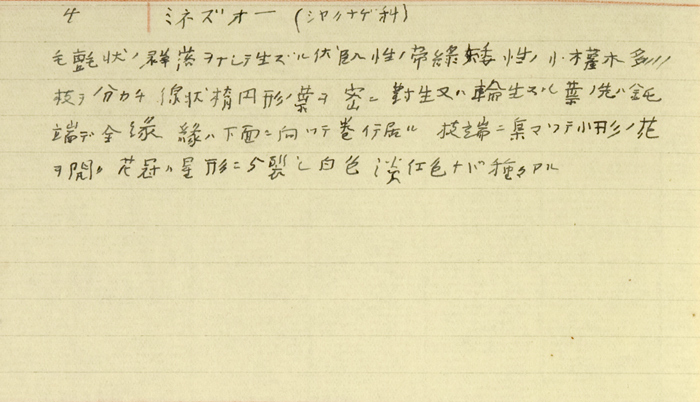 4 ミネズオー (シャクナゲ科)
毛氈状ノ群落ヲナシテ生ズル伏臥性ノ常緑矮性ノ小灌木 多クノ
枝ヲ分カチ 線状楕円形ノ葉ヲ密ニ對生又ハ輪生スル 葉ノ先ハ鈍
端デ全縁 縁ハ下面ニ向ツテ巻イテ居ル 枝端ニ集マツテ小形ノ花
ヲ開ク 花冠ハ星形ニ5裂シ白色 淡紅色ナド種々アル